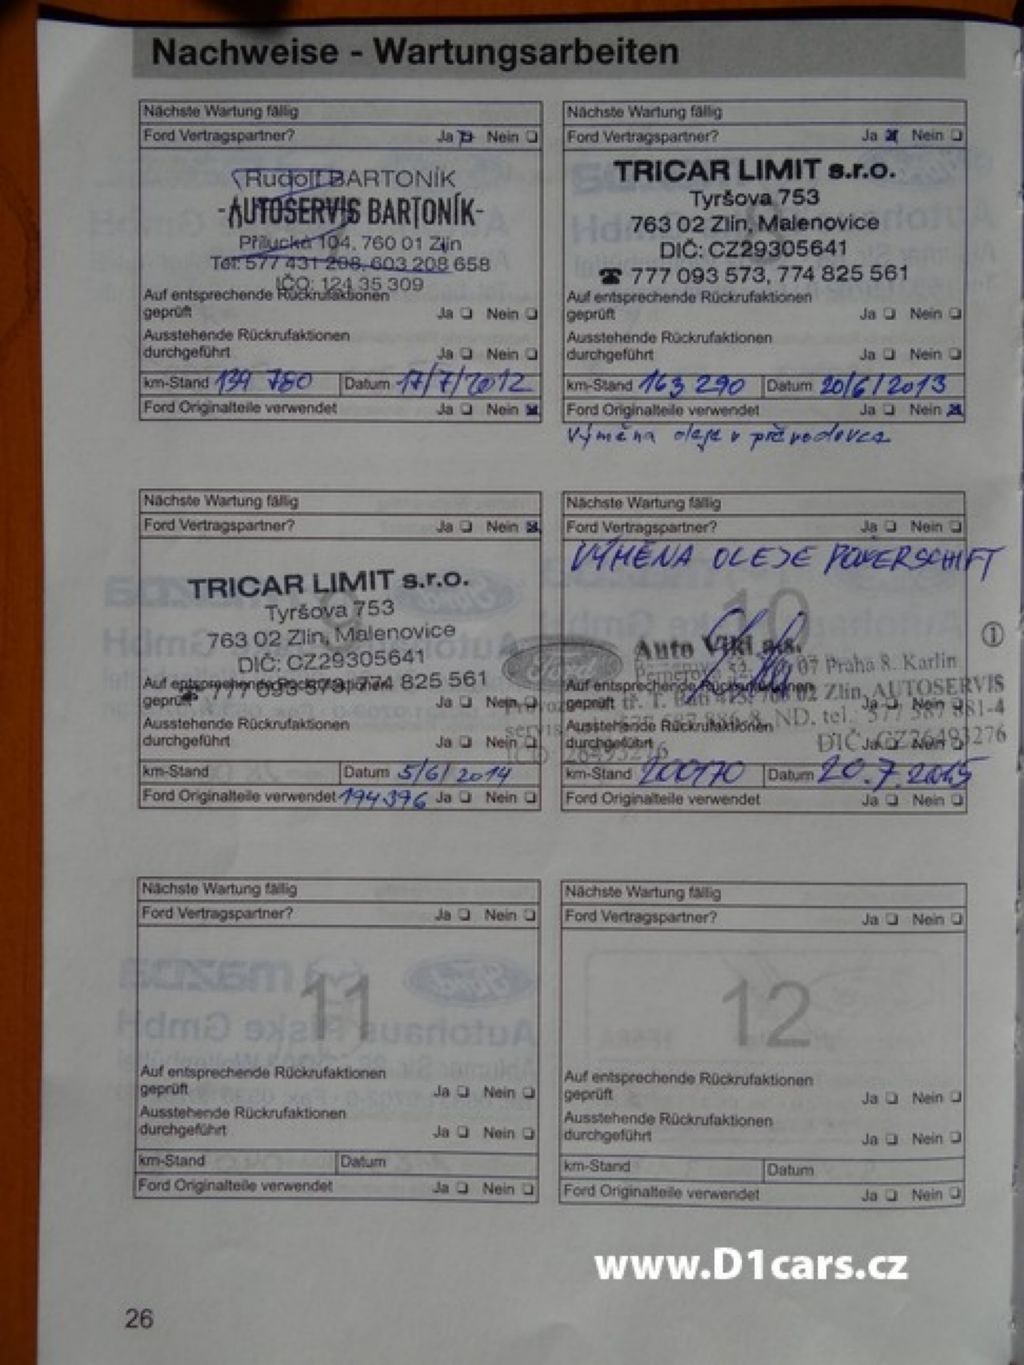 Nachweise - Wartungsarbeiten
Nächste Wartung fällig
Ford Vertragspartner? Ja Nein
Rudolf BARTONÍK
-AUTOSERVIS BARTONÍK-
Přílucká 104, 760 01 Zlín
Tel: 577 431 208, 603 208 658
IČO: 124 35 309
Auf entsprechende Rückrufaktionen
geprüft Ja Nein
Ausstehende Rückrufaktionen
durchgeführt Ja Nein
km-Stand 139 780 Datum 17/7/2012
Ford Originalteile verwendet Ja Nein
Nächste Wartung fällig
Ford Vertragspartner? Ja Nein
TRICAR LIMIT s.r.o.
Tyršova 753
763 02 Zlín, Malenovice
DIČ: CZ29305641
☎ 777 093 573, 774 825 561
Auf entsprechende Rückrufaktionen
geprüft Ja Nein
Ausstehende Rückrufaktionen
durchgeführt Ja Nein
km-Stand 163 290 Datum 20/6/2013
Ford Originalteile verwendet Ja Nein
Výměna oleje v převodovce
Nächste Wartung fällig
Ford Vertragspartner? Ja Nein
TRICAR LIMIT s.r.o.
Tyršova 753
763 02 Zlín, Malenovice
DIČ: CZ29305641
☎ 777 093 573, 774 825 561
Auf entsprechende Rückrufaktionen
geprüft Ja Nein
Ausstehende Rückrufaktionen
durchgeführt Ja Nein
km-Stand Datum 5/6/2014
Ford Originalteile verwendet 194396 Ja Nein
Nächste Wartung fällig
Ford Vertragspartner? Ja Nein
VÝMĚNA OLEJE POWERSCHIFT
10
Ford
Auto Viki a.s.
Pernerova 52, 07 Praha 8, Karlín
Auf entsprechende Rückrufaktionen
geprüft tř. T. Bati 02 Zlín, AUTOSERVIS
Ja Nein
Ausstehende Rückrufaktionen
ND. tel.: 577 587 881-4
durchgeführt Ja Nein
DIČ: CZ26493276
km-Stand 200170 Datum 20.7.2015
Ford Originalteile verwendet Ja Nein
①
Nächste Wartung fällig
Ford Vertragspartner? Ja Nein
11
Auf entsprechende Rückrufaktionen
geprüft Ja Nein
Ausstehende Rückrufaktionen
durchgeführt Ja Nein
km-Stand Datum
Ford Originalteile verwendet Ja Nein
Nächste Wartung fällig
Ford Vertragspartner? Ja Nein
12
Auf entsprechende Rückrufaktionen
geprüft Ja Nein
Ausstehende Rückrufaktionen
durchgeführt Ja Nein
km-Stand Datum
Ford Originalteile verwendet Ja Nein
www.D1cars.cz
26